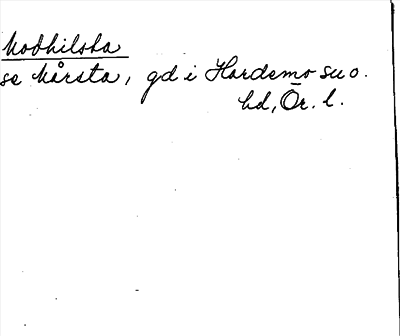 Modhilsta
se Mårsta, gd i Hardemo su o.
hd, Ör. l.